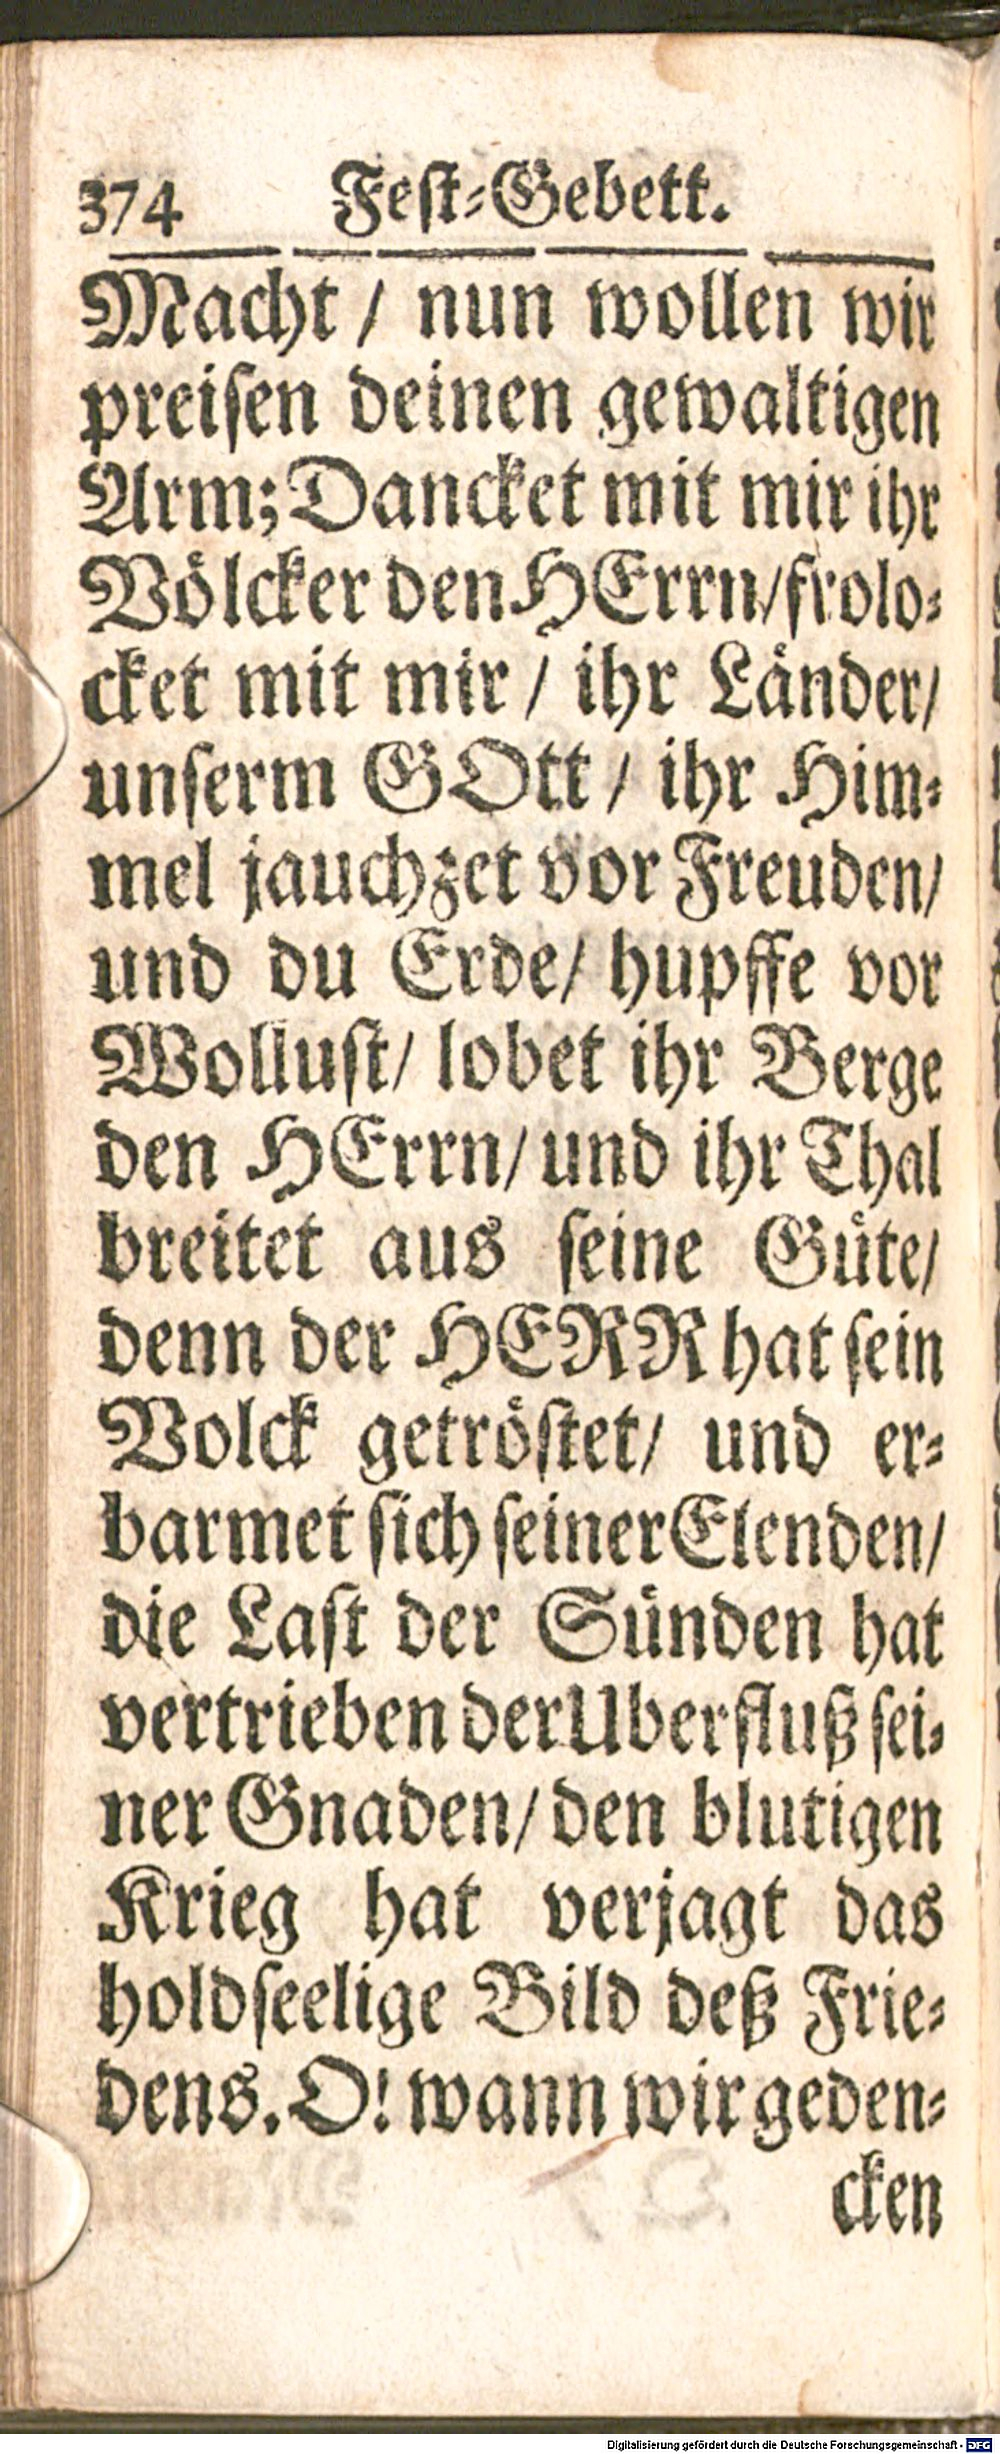 374 Fest-Gebett.
Macht / nun wollen wir
preisen deinen gewaltigen
Arm; Dancket mit mir ihr
Völcker den HErrn/ frolo-
cket mit mir / ihr Länder/
unserm GOtt / ihr Him-
mel jauchzet vor Freuden/
und du Erde/ hupffe vor
Wollust/ lobet ihr Berge
den HErrn/ und ihr Thal
breitet aus seine Güte/
denn der HERR hat sein
Volck getröstet/ und er-
barmet sich seiner Elenden/
die Last der Sünden hat
vertrieben der Uberfluß sei-
ner Gnaden/ den blutigen
Krieg hat verjagt das
holdseelige Bild deß Frie-
dens. O! wann wir geden-
cken
Digitalisierung gefördert durch die Deutsche Forschungsgemeinschaft - DFG